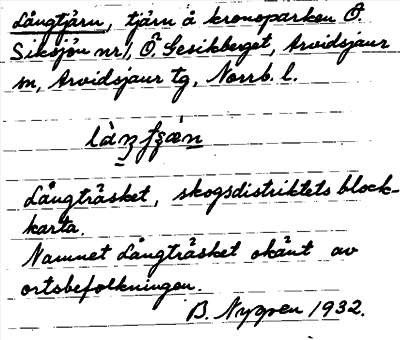 Långtjärn, tjärn å kronoparken Ö.
Siksjön nr 1, Ö. Gesikberget, Arvidsjaur
sn, Arvidsjaur tg, Norrb. l.
Långträsket, skogsdistriktets block-
karta.
Namnet Långträsket okänt av
ortsbefolkningen.
B. Nygren 1932.